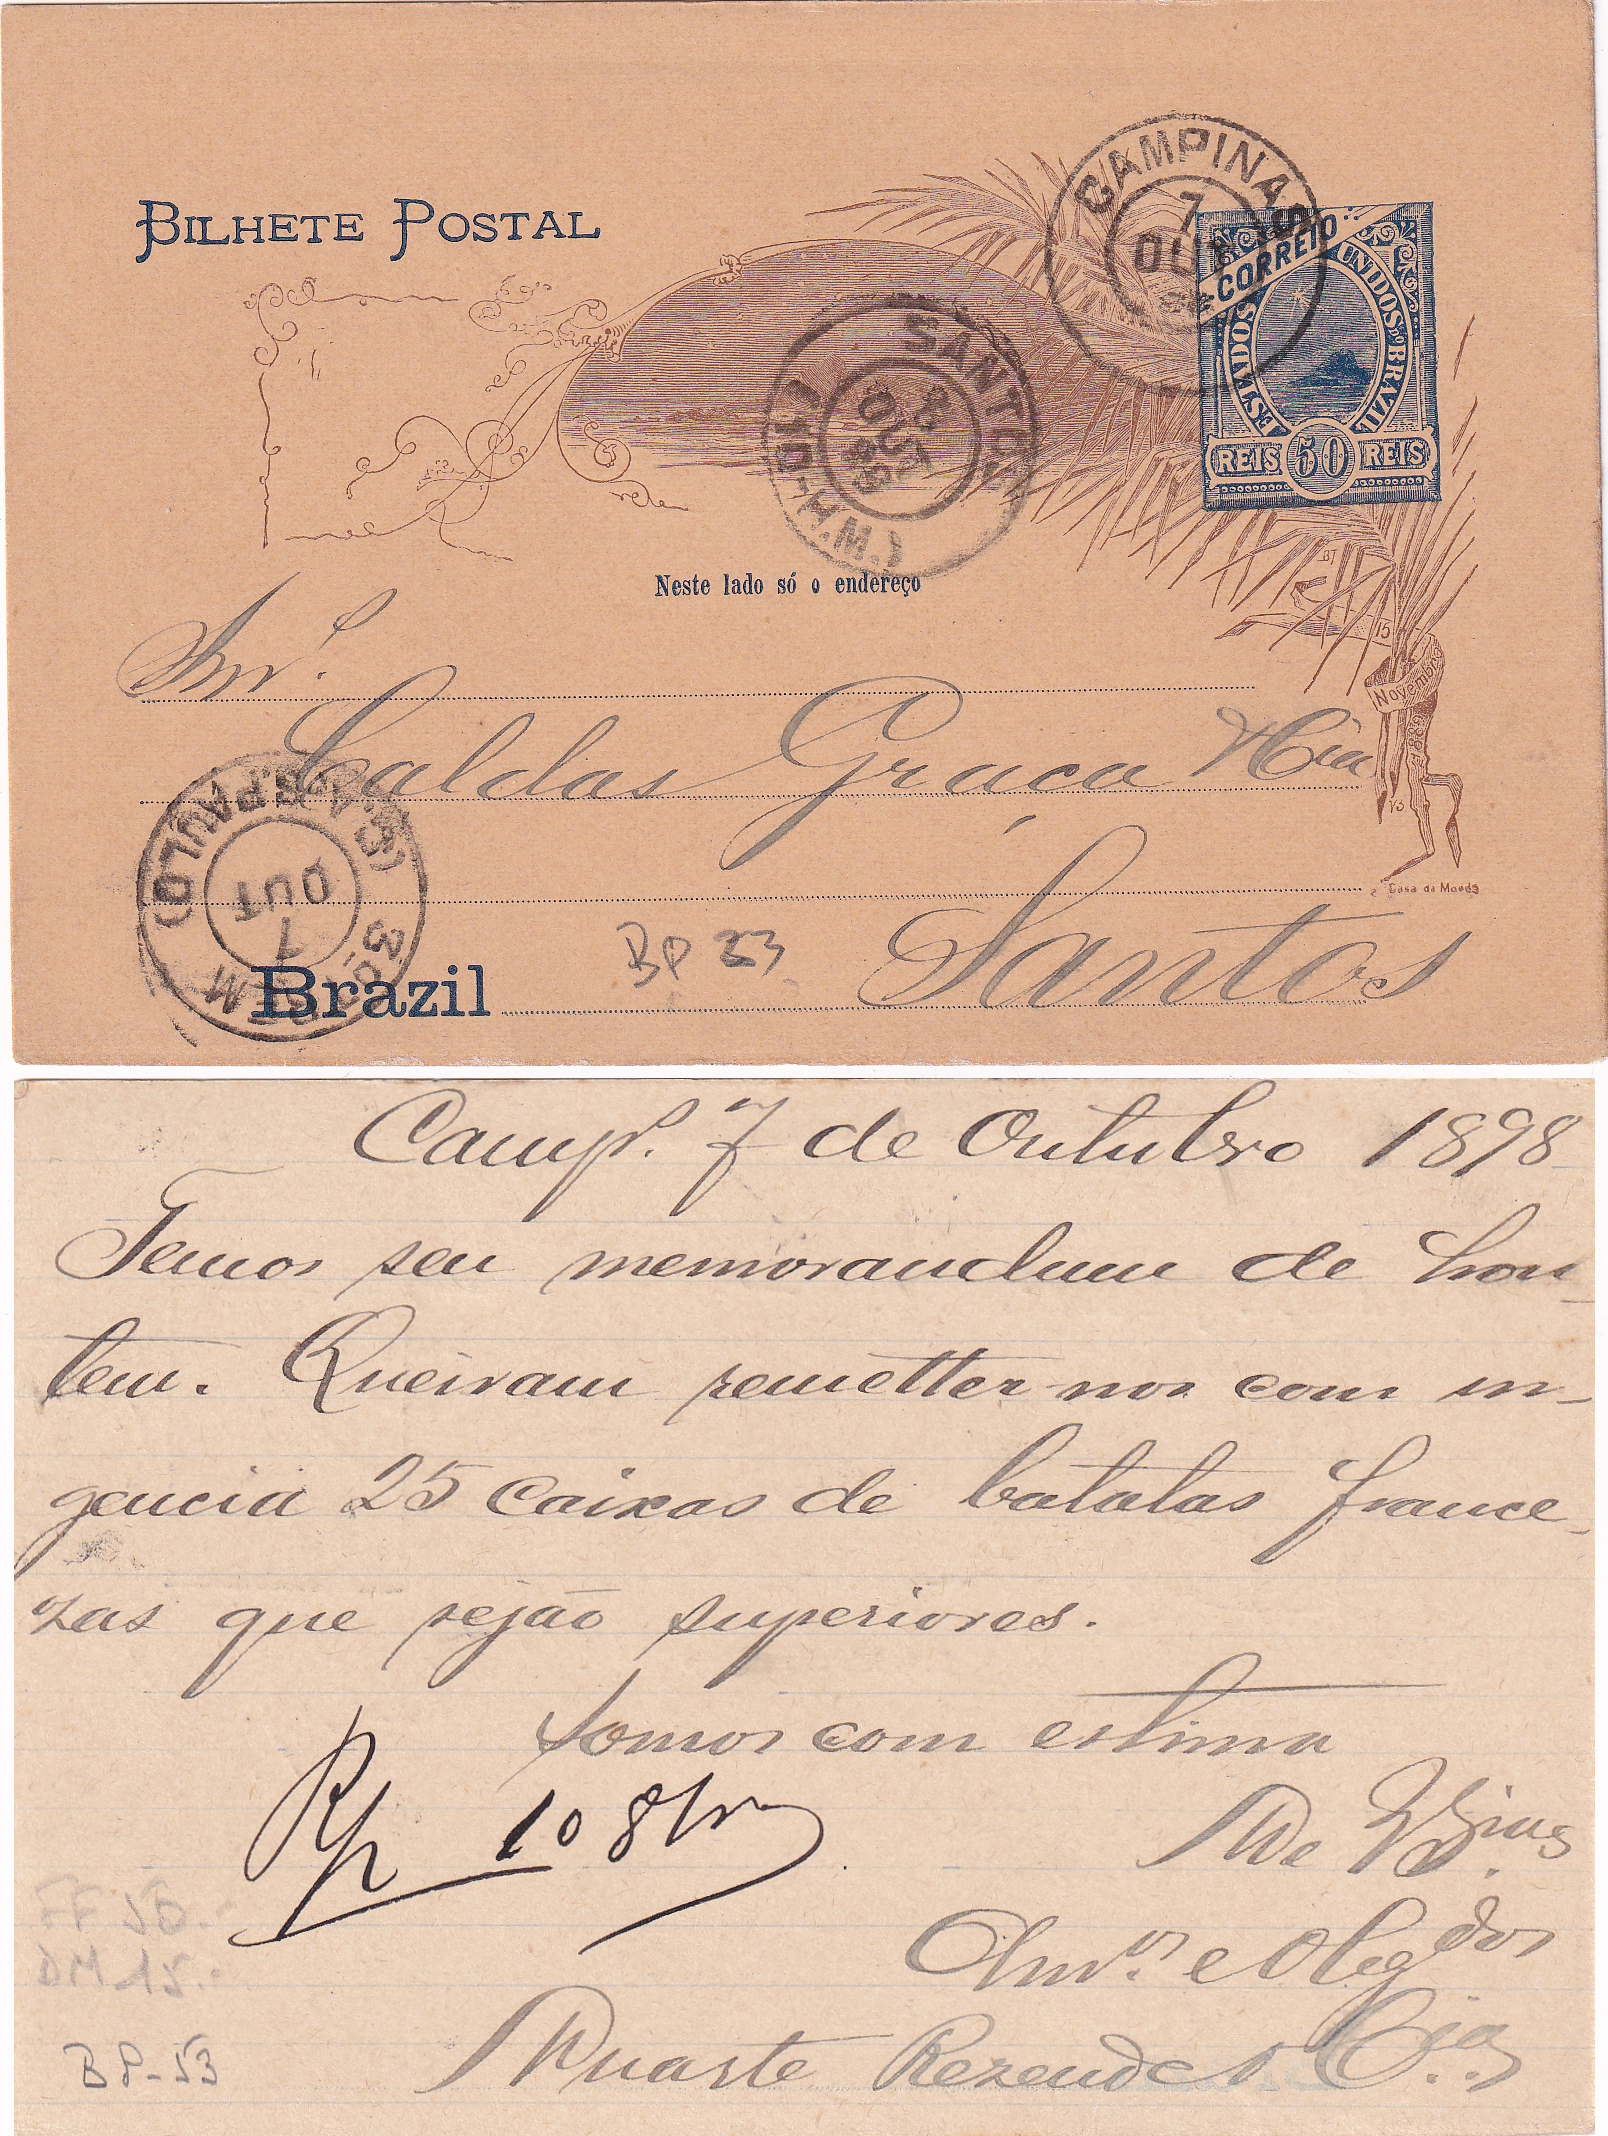 BILHETE POSTAL
CAMPINAS
7
OUT
CORREIO
ESTADOS UNIDOS DO BRAZIL
REIS 50 REIS
SANTOS
8
OUT
98
Neste lado só o endereço
15
Novembro
1889
Snr.
Caldas Graca & Cia
Casa da Moeda
S. PAULO
7
OUT
BP 53
Santos
Brazil
Camps. 7 de Outubro 1898
Temos seu memorandum de hon-
tem. Queiram remetter-nos com ur-
gencia 25 caixas de batatas france-
zas que sejão superiores.
Somos com estima
De V. Sias
Rp 10 8bro
Amos. e Obgdos
Duarte Rezende & Cia
BP-53